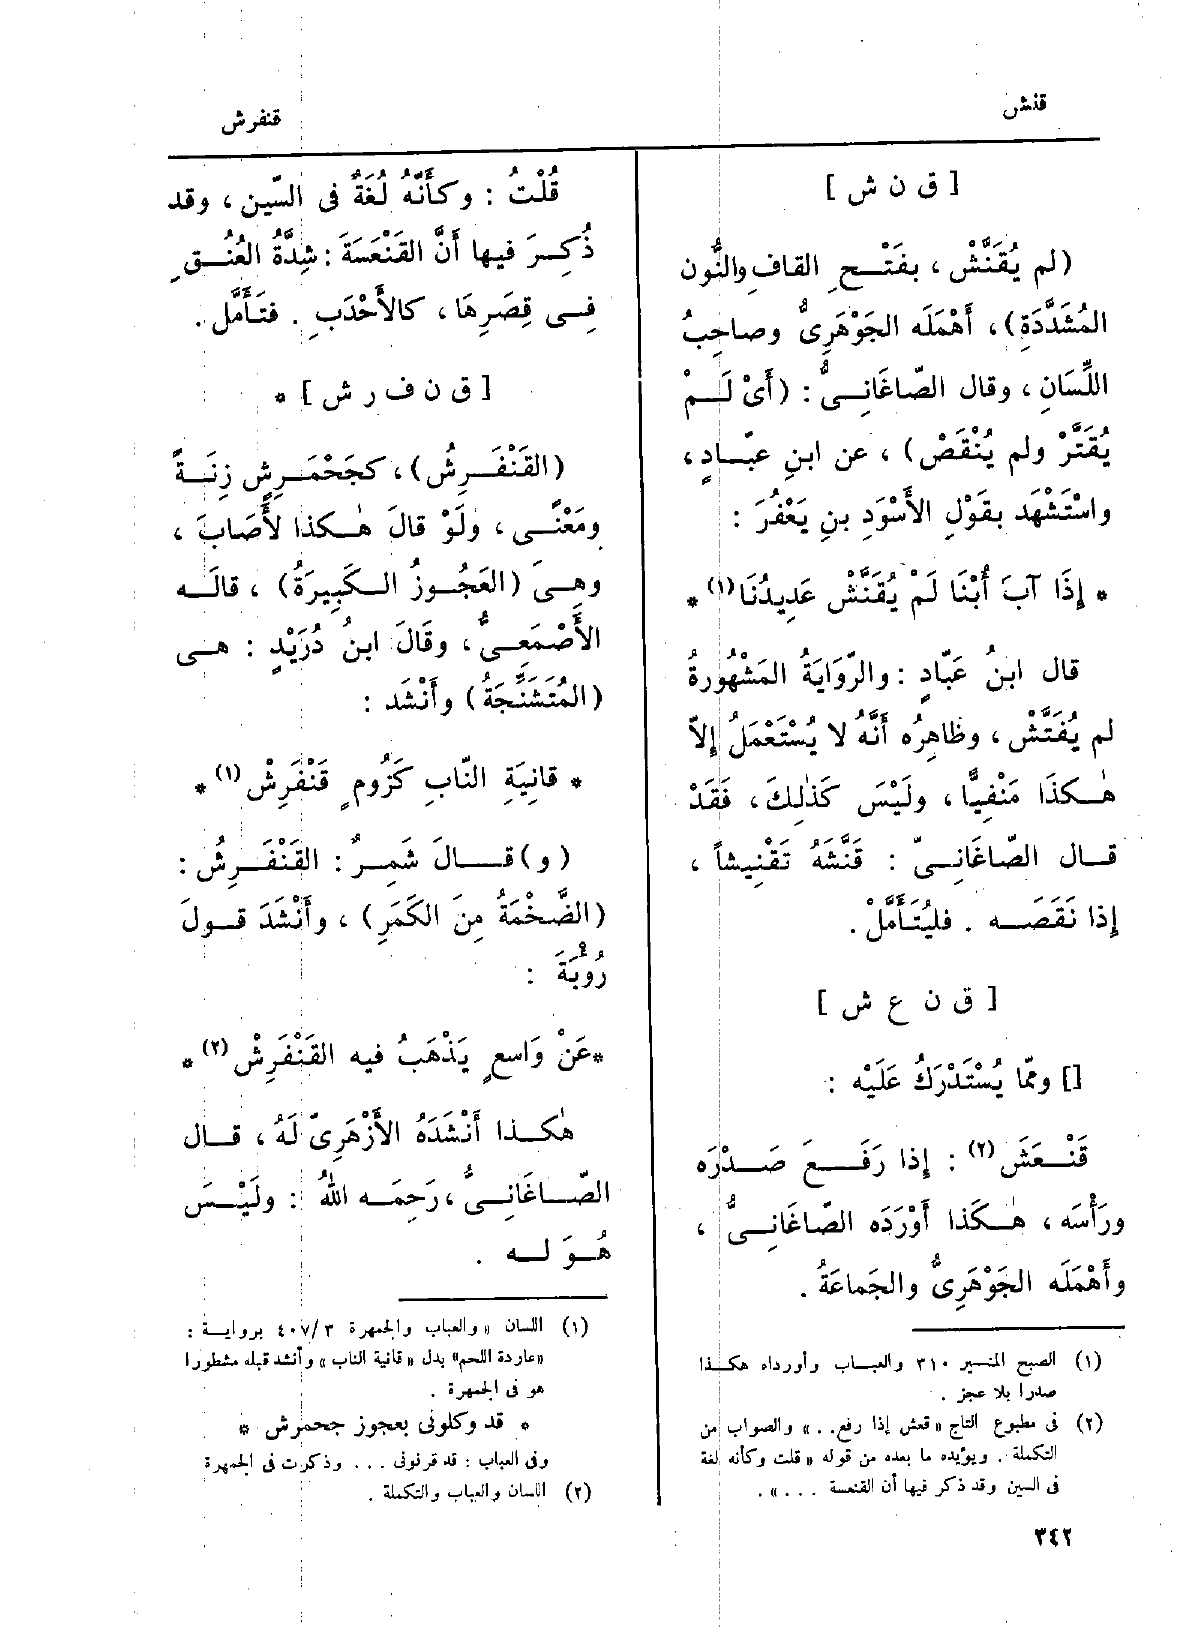 قنش
قنفرش
[ ق ن ش ]
(لم يُقَنَّشْ ، بفَتْـحِ القافِ والنُّون
المُشَدَّدَةِ) ، أَهْمَلَه الجَوْهَرِىُّ وصاحِبُ
اللِّسَانِ ، وقال الصّاغَانِـىُّ : (أَىْ لَـمْ
يُقَتَّرْ ولم يُنْقَصْ) ، عن ابنِ عبّـادٍ ،
واسْتَشْهَد بقَوْلِ الأَسْوَدِ بنِ يَعْفُرَ :
* إِذَا آبَ أُبْنَا لَمْ يُقَنَّشْ عَدِيدُنَا (١) *
قال ابنُ عَبّادٍ : والرِّوَايَةُ المَشْهُورةُ
لم يُفَتَّشْ ، وظاهِرُه أَنَّهُ لا يُسْتَعْمَلُ إِلاّ
هٰـكذَا مَنْفِيًّا ، ولَيْسَ كَذٰلِكَ ، فَقَدْ
قـال الصّاغَانِـىّ : قَنَّشَهُ تَقْنِيشاً ،
إِذا نَقَصَـه . فليُتَأَمَّلْ .
[ ق ن ع ش ]
[] وممّا يُسْتَدْرَكُ عَلَيْه :
قَنْـعَشَ (٢) : إِذا رَفَـعَ صَـدْرَه
ورَأْسَه ، هٰـكَذا أَوْرَدَه الصّاغَانِـىُّ ،
وأَهْمَلَه الجَوْهَرِىُّ والجَماعَةُ .
(١) الصبح المنير ٣١٠ والعباب وأورداه هكذا
صدرا بلا عجز .
(٢) فى مطبوع التاج « قعش إذا رفع . . » والصواب من
التكملة . ويؤيده ما بعده من قوله « قلت وكأنه لغة
فى السين وقد ذكر فيها أن القنعسة . . . » .
٣٤٢
قُلْتُ : وكأَنَّهُ لُغَةٌ فى السِّين ، وقد
ذُكِرَ فيها أَنَّ القَنْعَسَةَ : شِدَّةُ العُنُـقِ
فِـى قِصَرِهَا ، كالأَحْدَبِ . فتَـأَمَّلْ .
[ ق ن ف ر ش ] *
(القَنْفَـرِشُ) ، كجَحْمَـرِشٍ زِنَـةً
ومَعْنًـى ، ولَوْ قالَ هٰـكذا لأَصَابَ ،
وهـىَ (العَجُـوزُ الـكَبِيرَةُ) ، قالَـه
الأَصْمَعِـىُّ ، وقَالَ ابنُ دُرَيْدٍ : هـى
(المُتَشَنِّجَةُ) وأَنْشَد :
* قانِيَةِ النّابِ كَزُومٍ قَنْفَرِشْ (١) *
(و) قـال شَمِـرٌ : القَنْفَـرِشُ :
(الضَّخْمَةُ مِنَ الكَمَرِ) ، وأَنْشَدَ قـولَ
رُوبَةَ :
*عَنْ وَاسعٍ يَذْهَبُ فيه القَنْفَرِشْ (٢) *
هٰكـذا أَنْشَدَهُ الأَزْهَرِىّ لَهُ ، قـال
الصّـاغَانِـىُّ ، رَحِمَـه اللهُ : ولَيْـسَ
هُـوَ لـه .
(١) اللسان والعباب والجمهرة ٤٠٧/٣ برواية :
«عاردة اللحم» بدل « قانية الناب » وأنشد قبله مشطورا
هو فى الجمهرة .
* قد وكلونى بعجوز جحمرش *
وفى العباب : قد قرنونى . . . وذكرت فى الجمهرة
(٢) اللسان والعباب والتكملة .